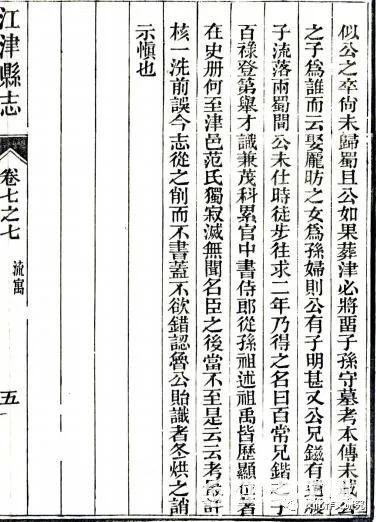 似公之卒尚未歸蜀且公如果葬津必將畱子孫守墓考本傳未載公
之子爲誰而云娶龐昉之女爲孫婦則公有子明甚又公兄鎡有遺腹
子流落兩蜀間公未仕時徒步往求二年乃得之名曰百常兄鍇之子
百祿登第舉才識兼茂科累官中書侍郎從孫祖述祖禹皆歷顯位著
在史册何至津邑范氏獨寂滅無聞名臣之後當不至是云云考
核一洗前誤今志從之削而不書蓋不欲錯認魯公貽識者冬烘之誚
示愼也
江津縣志
卷七之七
流寓
五